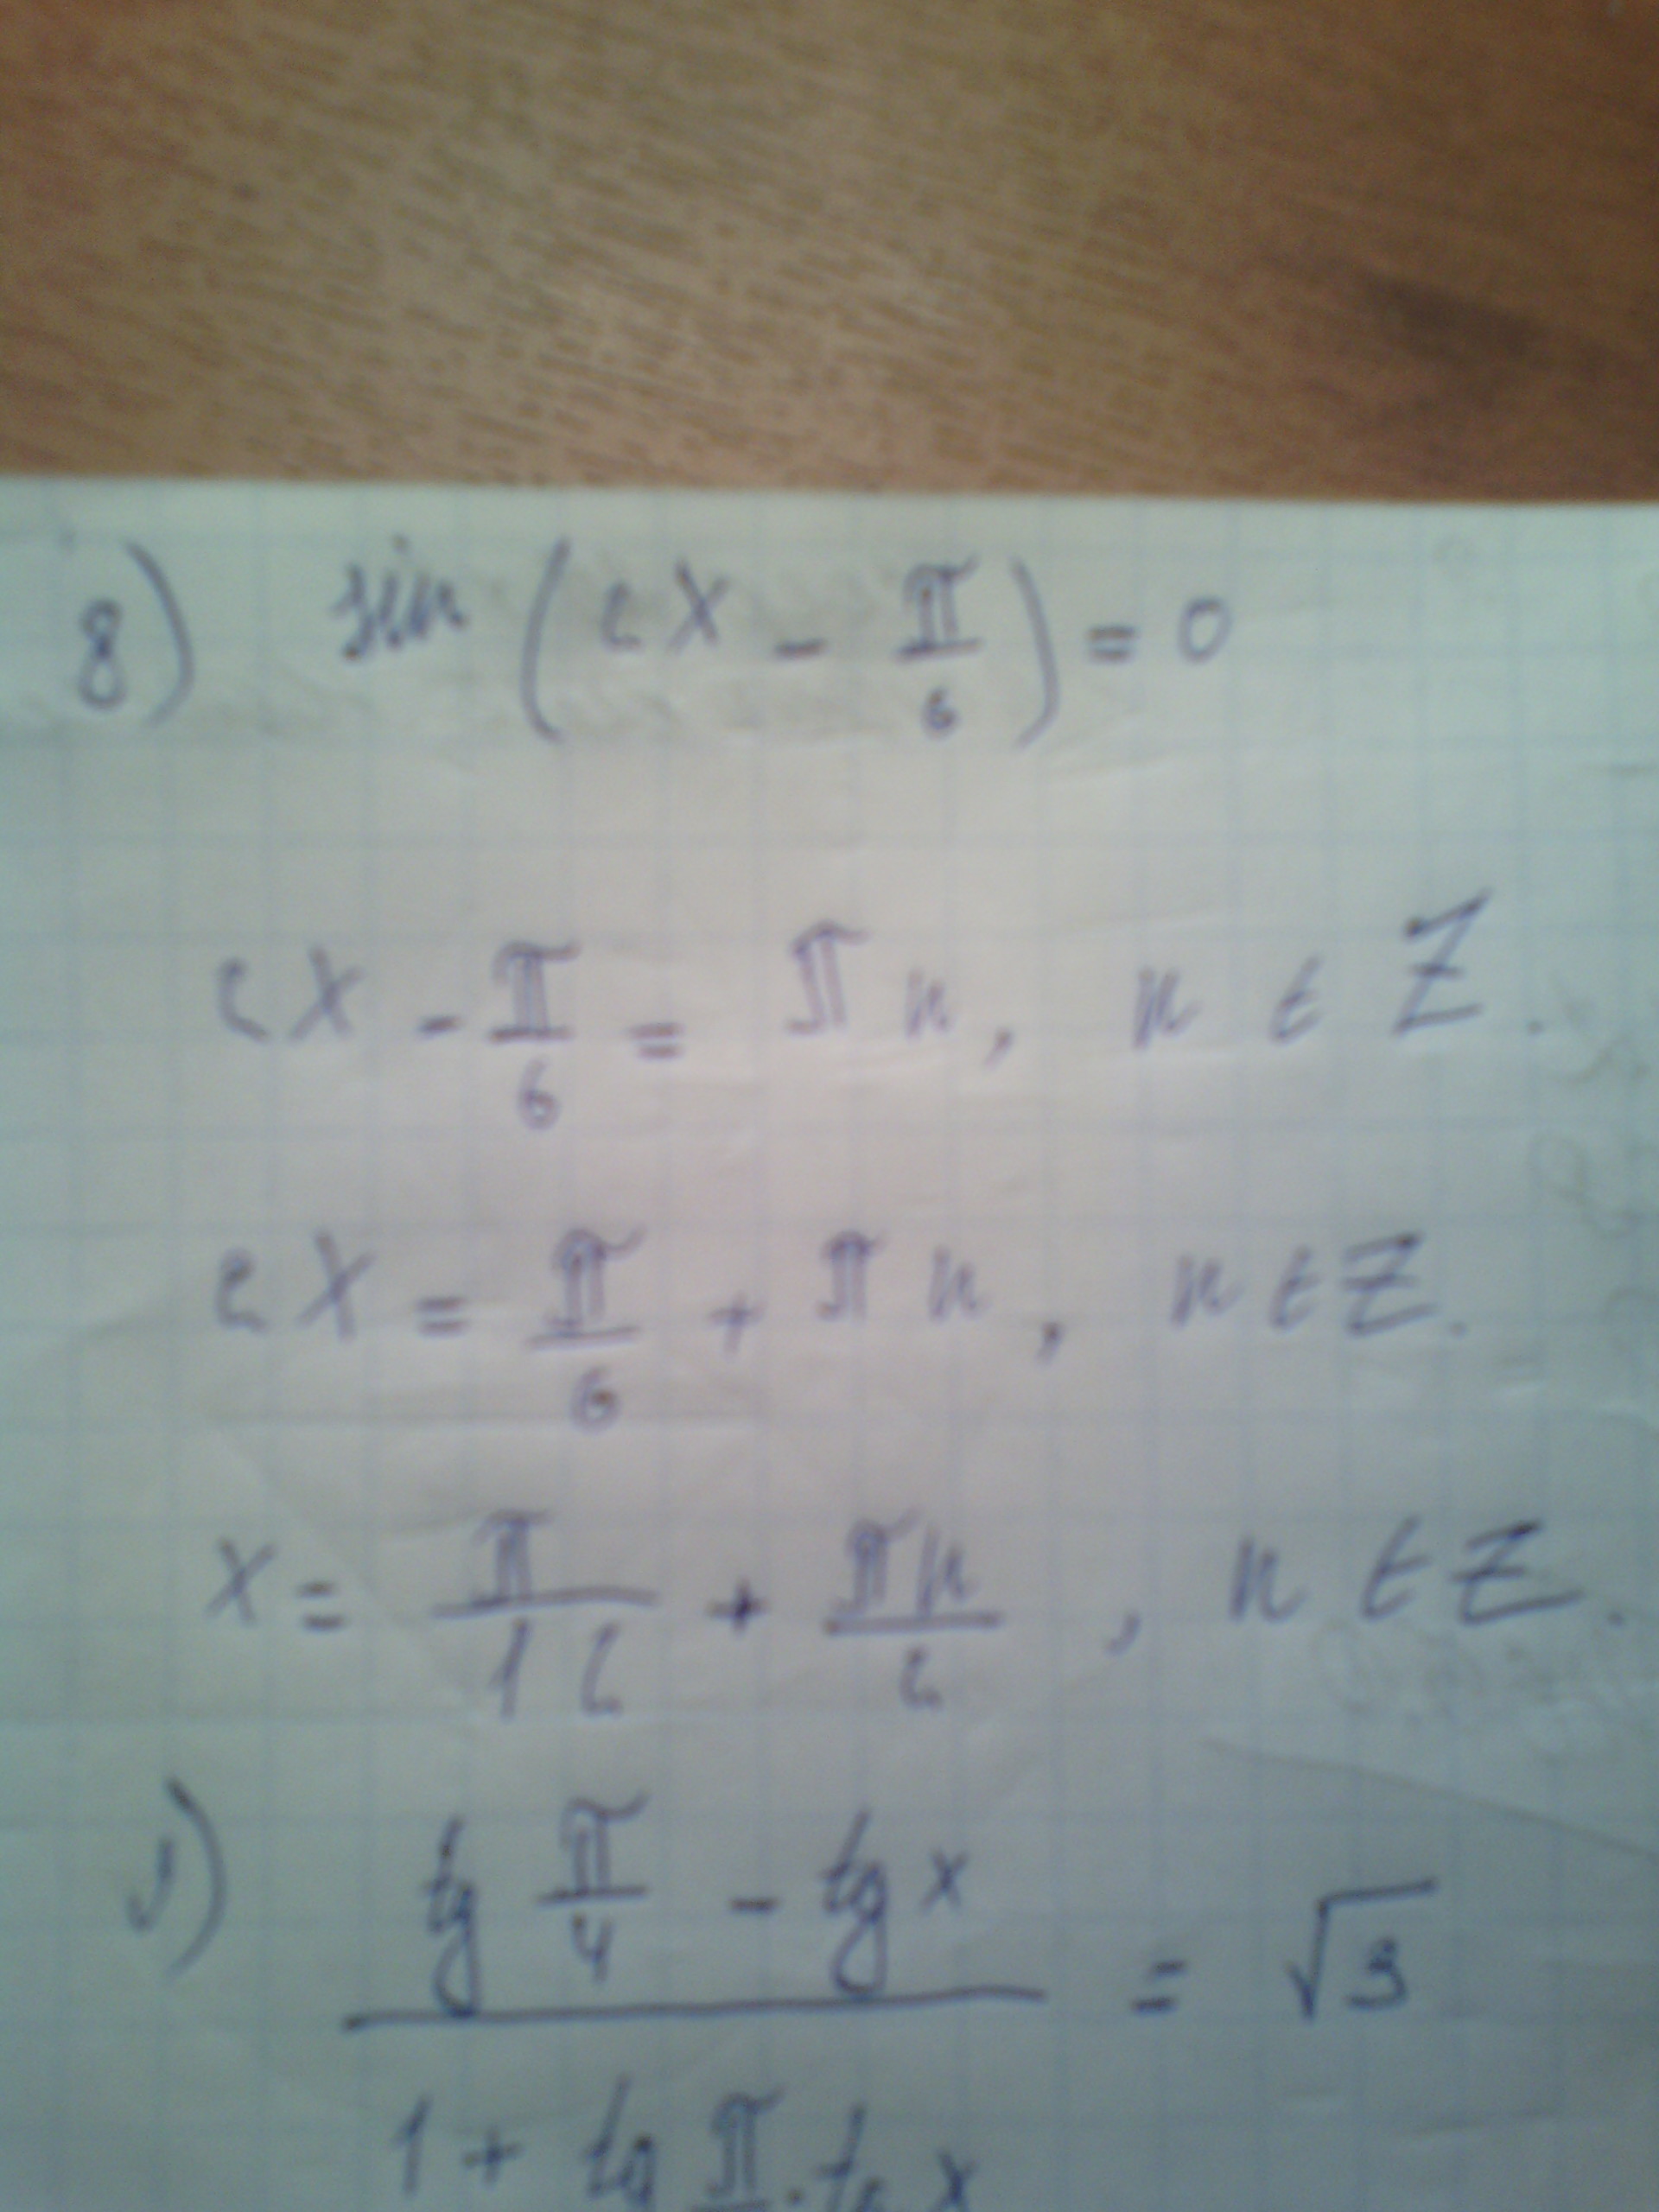 8) sin (2x - π/6) = 0
2x - π/6 = πn, n ∈ Z.
2x = π/6 + πn, n ∈ Z.
x = π/12 + πn/2, n ∈ Z.
(tg π/4 - tg x) / = √3
1 + tg π · tg x